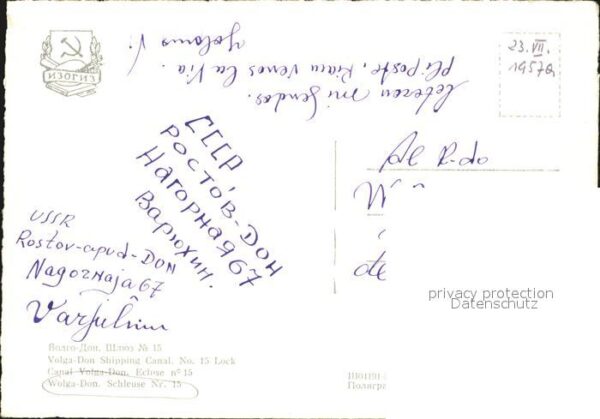 ИЗОГИЗ
23. VII.
1957a
Leteron mi sendos.
Pli poste, kiam venos la Via.
V.
Al R-do
СССР
РОСТОВ-ДОН
Нагорная 67
Варюхин.
USSR
Rostov-apud-DON
Nagornaja 67
privacy protection
Datenschutz
Волго-Дон. Шлюз № 15
Volga-Don Shipping Canal. No. 15 Lock
Canal Volga-Don. Ecluse n° 15
Wolga-Don. Schleuse Nr. 15